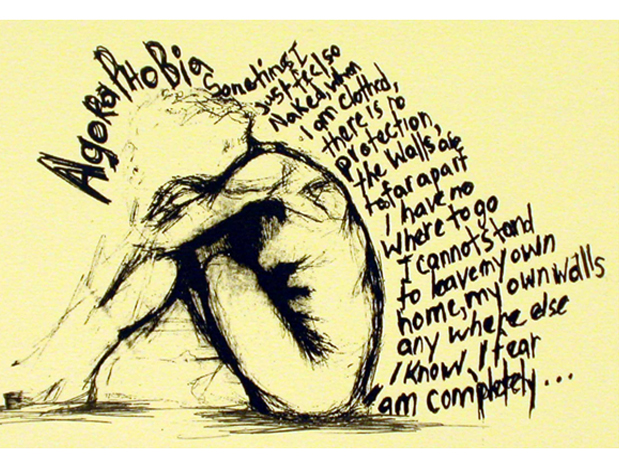 AgoraPHoBia
Sometimes I
just feel so
Naked, when
I am clothed,
there is no
protection,
the walls are
to far apart
I have no
where to go
I cannot stand
to leave my own
home, my own walls
any where else
I know, I fear
I am completely...